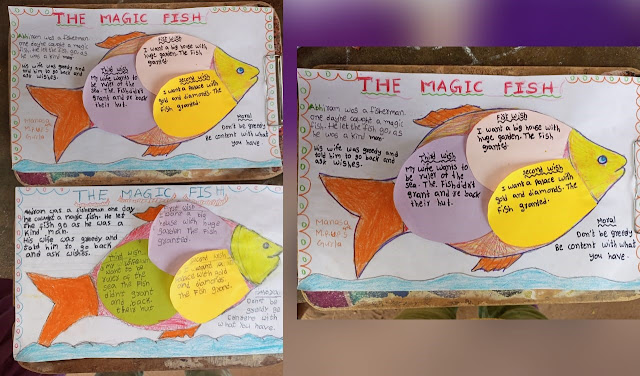 THE MAGIC FISH
Abhiram was a fisherman
one day he caught a magic
fish. He let the fish go, as
he was a kind man
His wife was greedy and
told him to go back and
ask wishes.
First wish
I want a big house with,
huge garden. The Fish
granted!
Third wish
My wife wants to
be ruler of the
sea. The. Fish didn't
grant and be back
their hut.
second wish
I want a Palace with
gold and diamonds. The
Fish granted.
Manasa
Moral
Don't be Greedy
Be content with what
you have
THE MAGIC FISH
one day
he caught a magic fish. He let
the fish go as he was a
kind man.
His wife was greedy and
told him to go back
and ask wishes.
I want a big
house with huge
garden The Fish
Third wish
second wish
palace with gold
and diamonds
The Fish
sea The Fish
didn't grant
and back
their hut
Don't be
greedy
with
what you have.
THE MAGIC FISH
Abhiram was a fisherman
one day he caught a magic
fish. He let the fish go, as
he was a kind man
His wife was greedy and
told him to go back and
ask wishes.
First wish
I want a big house with,
huge garden. The Fish
granted!
Third wish
My wife wants to
be ruler of the
sea. The. Fish didn't
grant and be back
their hut.
second wish
I want a Palace with
gold and diamonds. The
Fish granted.
Manasa
Moral
Don't be Greedy
Be content with what
you have.